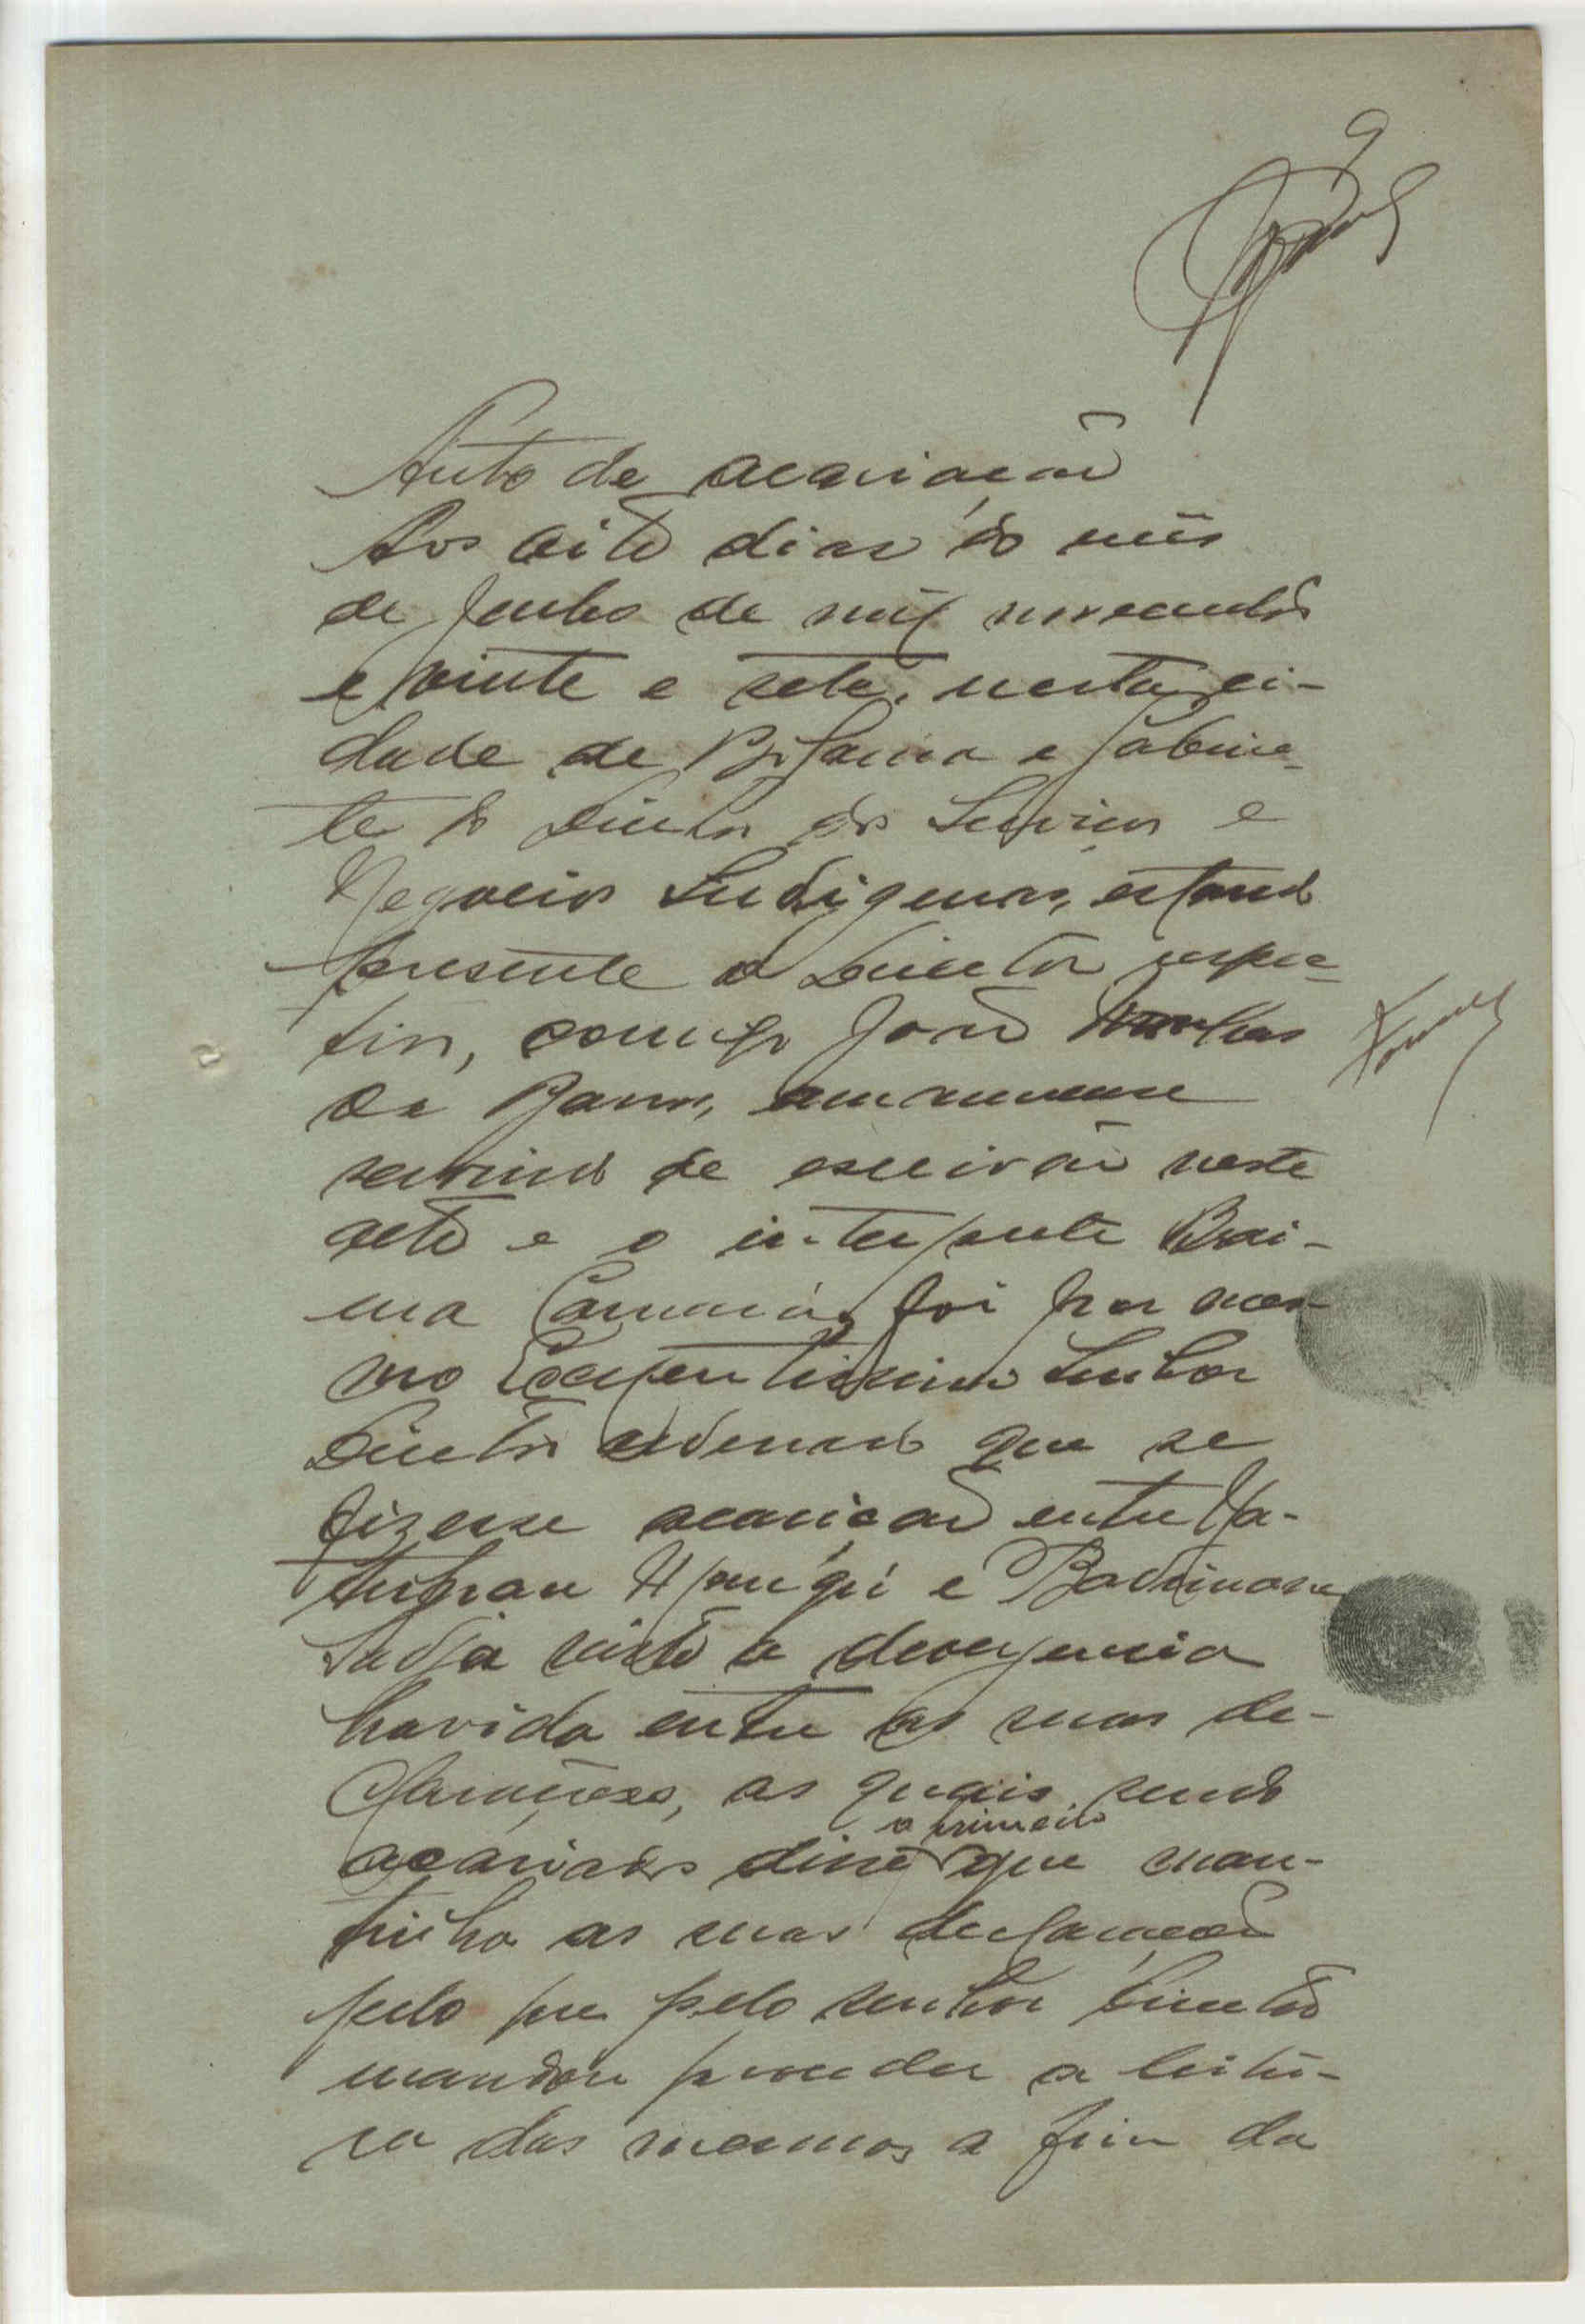 9
Auto de acariação
Aos oito dias do mês
de Junho de mil novecentos
e vinte e sete, nesta ci-
dade de Bolama e Gabine-
te do Director dos Serviços e
Negocios Indigenas, estando
presente o Director respec-
tivo, comigo João
de Barros, amanuense
servindo de escrivão neste
acto e o interprete Brai-
ma Camará, foi por mes-
mo Excelentissimo Senhor
Director ordenado que se
fizesse acariação entre
e
Sadja visto a devergencia
havida entre as suas de-
clarações, as quais sendo
acariados disse o primeiro que man-
tinha as suas declarações
pelo que pelo senhor Director
mandou proceder a leitu-
ra das mesmas a fim da